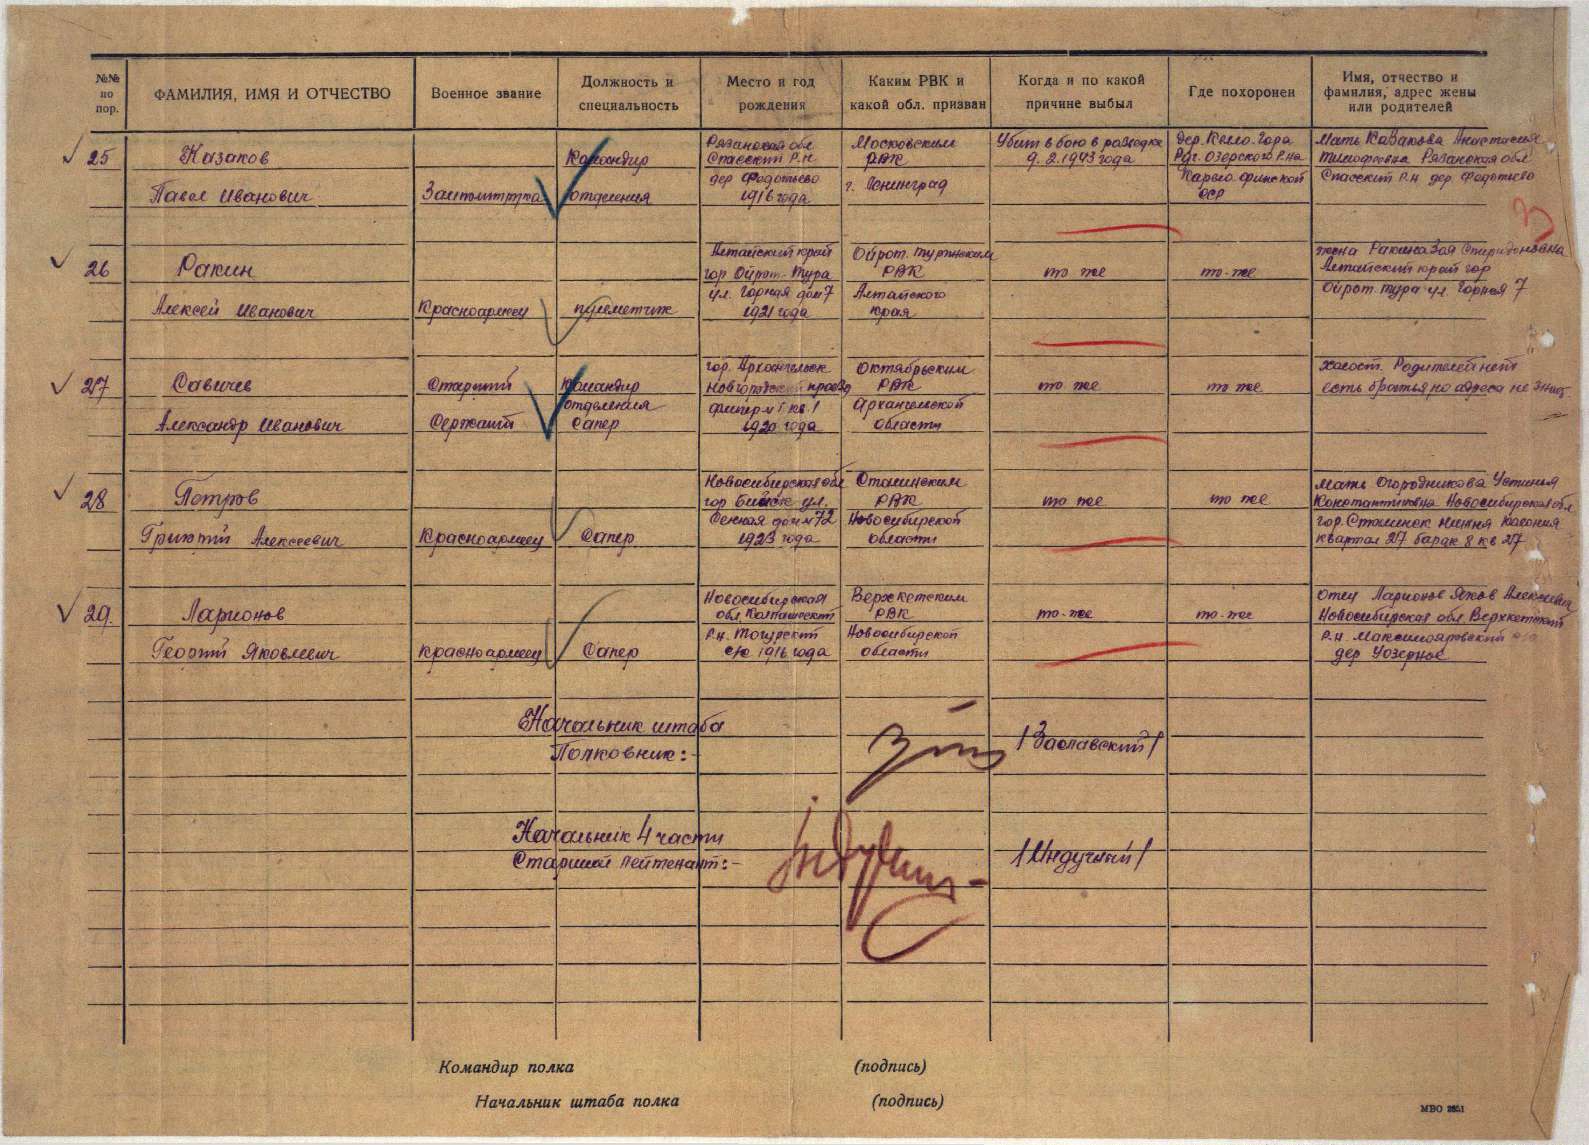 №№ по пор.
ФАМИЛИЯ, ИМЯ И ОТЧЕСТВО
Военное звание
Должность и специальность
Место и год рождения
Каким РВК и какой обл. призван
Когда и по какой причине выбыл
Где похоронен
Имя, отчество и фамилия, адрес жены или родителей
25
Казаков
Павел Иванович
Командир
отделения
Рязанская обл
Спасский Р.н
дер Федотьево
1916 года
Московским
РВК
г. Ленинград
Убит в бою в разведке
9. 2. 1943 года
дер.
Гора
Озерского Р.на
Карело. финской
ССР
Мать Казакова Анастасия
Тимофеевна Рязанская обл
Спасский Р.н дер Федотьево
3
26
Ракин
Алексей Иванович
Красноармеец
пулеметчик
Алтайский край
гор Ойрот-Тура
ул. Горная дом 7
1921 года
Ойрот. Туринским
РВК
Алтайского
края
то же
то-же
жена Ракина Зоя Спиридоновна
Алтайский край гор
Ойрот. тура ул. Горная 7
27
Савичев
Александр Иванович
Старший
Сержант
Командир
отделения
Сапер
гор. Архангельск
Новгородский проезд
кв. 1
1920 года
Октябрьским
РВК
Архангельской
области
то же
то же
холост. Родителей нет
есть братья но адреса не знает
28
Петров
Алексеевич
Красноармеец
Сапер
Новосибирская обл
гор Бийск ул.
Сенная дом 72
1923 года
Сталинским
РВК
Новосибирской
области
то же
то же
Мать Огородникова Устинья
Константиновна Новосибирская обл
гор. Сталинск нижня колония
квартал 27 барак 8 кв 27
29.
Ларионов
Георгий Яковлевич
Красноармеец
Сапер
Новосибирская
обл. Колпашевский
Р.н. Тогурский
с/с 1916 года
Верхкетским
РВК
Новосибирской
области
то-же
то-же
отец Ларионов Яков Алексеевич
Новосибирская обл Верхкетский
Р.н. Максимояровский с/с
дер Уозерное
Начальник штаба
Полковник:-
/Заславский/
Начальник 4 части
Старший лейтенант:-
/Индучный/
Командир полка (подпись)
Начальник штаба полка (подпись)